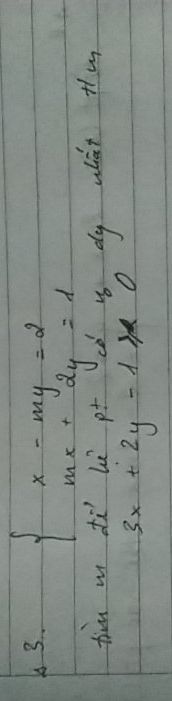 b3. { x - my = 2
mx + 2y = 1
tìm m để hệ pt có n₀ dy nhất t/m
3x + 2y - 1 0